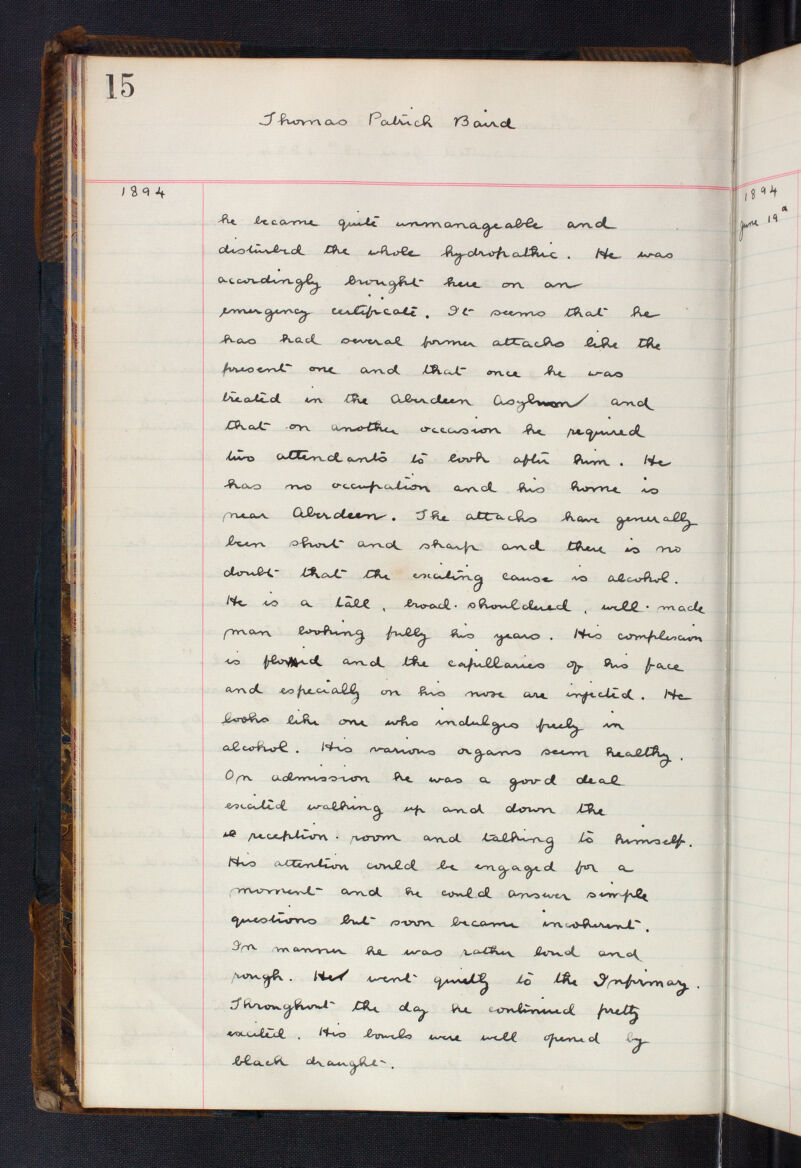 15
Thomas Patrick Baird
1894
he became quite unmanageable and
disturbed the whole hydropathic. He was
accordingly brought here on an
emergency certificate. It seems that he
has had several former attacks like the
present one and that once he was
treated in the Aberdeen Asylum and
that on another occasion he required
two attendants to look after him. He
has no occupation and his home is
near Aberdeen. The attacks have generally
been short and sharp and there is no
doubt that the exciting cause is alcohol.
He is a tall, broad-shouldered, well-made
man looking fully his years. His complexion
is florid and the capillaries of his face
and especially on his nose are injected. He
looks like one who indulges freely in
alcohol. His various organs seem healthy.
On admission he was a good deal
excited walking up and down the
reception-room and talking to himself.
His attention could be engaged for a
moment and he could answer simple
questions but soon became incoherent.
In manner he was rather loud and
rough. He went quietly to the Infirmary.
Throughout the day he continued pretty
excited. His bowels were well opened by
black draught.
1894
June 19a